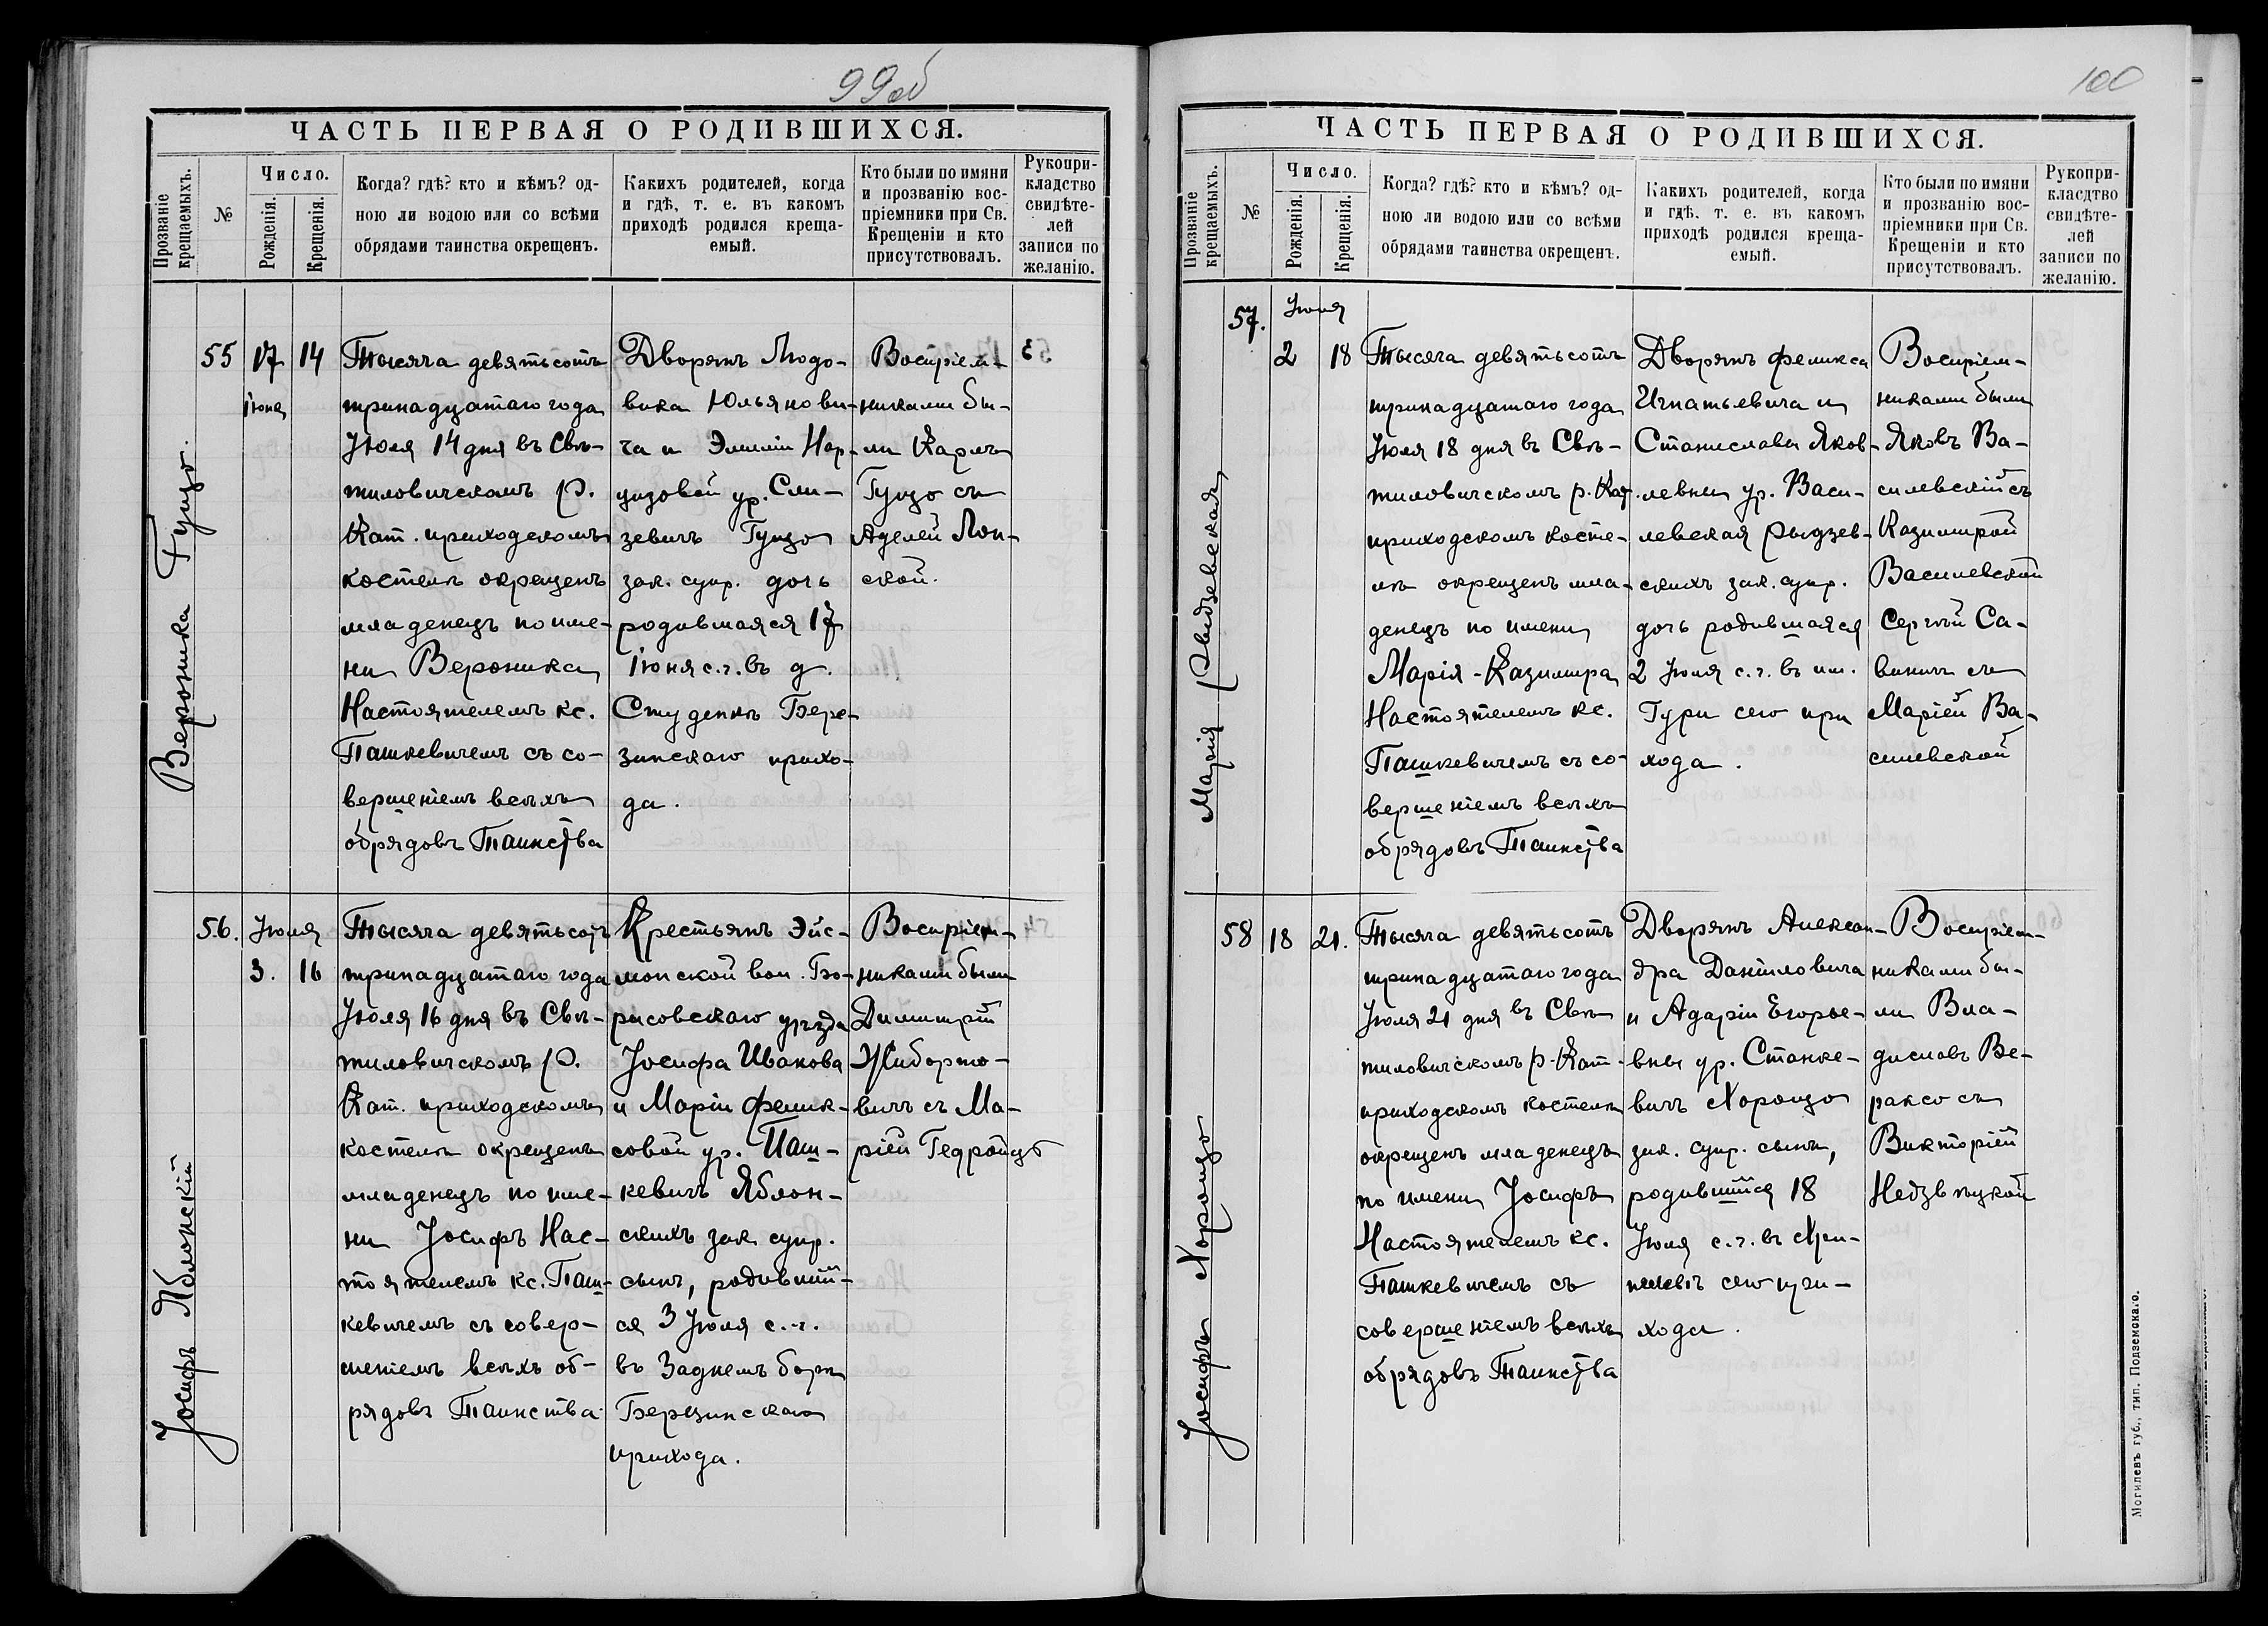 99об
ЧАСТЬ ПЕРВАЯ О РОДИВШИХСЯ.
Прозваніе крещаемыхъ.
№
Число.
Рожденія.
Крещенія.
Когда? гдѣ? кто и кѣмъ? од-
ною ли водою или со всѣми
обрядами таинства окрещенъ.
Какихъ родителей, когда
и гдѣ, т. е. въ какомъ
приходѣ родился креща-
емый.
Кто были по имяни
и прозванію вос-
пріемники при Св.
Крещеніи и кто
присутствовалъ.
Рукопри-
кладство
свидѣте-
лей
записи по
желанію.
Вероника Гуцзо.
55
17
Іюня
14
Тысяча девятьсотъ
тринадцатаго года
Іюля 14 дня въ Свѣ-
тиловичскомъ Р.
Кат. приходскомъ
костелѣ окрещенъ
младенецъ по име-
ни Вероника
Настоятелемъ кс.
Пашкевичемъ съ со-
вершеніемъ всѣхъ
обрядовъ Таинства
Дворянъ Людо-
вика Юльянови-
ча и Эмиліи Нар-
цизовой ур. Сли-
зевичъ Гуцзо
зак. супр. дочь
родившаяся 17
Іюня с.г. въ д.
Студенкѣ Бере-
зинскаго прихо-
да.
Воспріем-
никами бы-
ли Карлъ
Гуцзо съ
Аделей Лоп-
ской.
Іосифъ Яблонскій
56.
Іюля
3.
16
Тысяча девятьсотъ
тринадцатаго года
Іюля 16 дня въ Свѣ-
тиловичскомъ Р.
Кат. приходскомъ
костелѣ окрещенъ
младенецъ по име-
ни Іосифъ Нас-
тоятелемъ кс. Паш-
кевичемъ съ совер-
шеніемъ всѣхъ об-
рядовъ Таинства
Крестьянъ Эйс-
монской вол. Бо-
рисовскаго уѣзда
Іосифа Иванова
и Маріи Фелик-
совой ур. Паш-
кевичъ Яблон-
скихъ зак. супр.
сынъ, родивший-
ся 3 Іюля с.г.
въ Заднемъ борѣ
Березинскаго
прихода.
Воспріем-
никами были
Димитрій
Жиборто-
вичъ съ Ма-
ріей Гедройцъ
100
ЧАСТЬ ПЕРВАЯ О РОДИВШИХСЯ.
Прозваніе крещаемыхъ.
№
Число.
Рожденія.
Крещенія.
Когда? гдѣ? кто и кѣмъ? од-
ною ли водою или со всѣми
обрядами таинства окрещенъ.
Какихъ родителей, когда
и гдѣ. т. е. въ какомъ
приходѣ родился креща-
емый.
Кто были по имяни
и прозванію вос-
пріемники при Св.
Крещеніи и кто
присутствовалъ.
Рукопри-
класдтво
свидѣте-
лей
записи по
желанію.
Марія Рыдзевская
57.
Іюля
2
18
Тысяча девятьсотъ
тринадцатаго года
Іюля 18 дня въ Свѣ-
тиловичскомъ р. Кат.
приходскомъ косте-
лѣ окрещенъ мла-
денецъ по имени
Марія-Казимира
Настоятелемъ кс.
Пашкевичемъ съ со-
вершеніемъ всѣхъ
обрядовъ Таинства
Дворянъ Феликса
Игнатьевича и
Станиславы Яков-
левны ур. Васи-
левская Рыдзев-
скихъ зак. супр.
дочь родившаяся
2 Іюля с.г. въ им.
Гури сего при
хода.
Воспріем-
никами были
Яковъ Ва-
силевскій съ
Казимирой
Василевской
Сергѣй Са-
вичъ съ
Маріей Ва-
силевской
Іосифъ Хороцзо
58
18
21.
Тысяча девятьсотъ
тринадцатаго года
Іюля 21 дня въ Свѣ
тиловичскомъ р-Кат.
приходскомъ костелѣ
окрещенъ младенецъ
по имени Іосифъ
Настоятелемъ кс.
Пашкевичемъ съ
совершеніемъ всѣхъ
обрядовъ Таинства
Дворянъ Алексан-
дра Даніиловича
и Адаріи Егорье-
вны ур. Станке-
вичъ Хороцзо
зак. супр. сынъ,
родившійся 18
Іюля с.г. въ
сего при-
хода.
Воспріем-
никами бы-
ли Вла-
диславъ Ве-
раксо съ
Викторіей
Недзвѣцкой
Могилевъ губ., тип. Подземскаго.